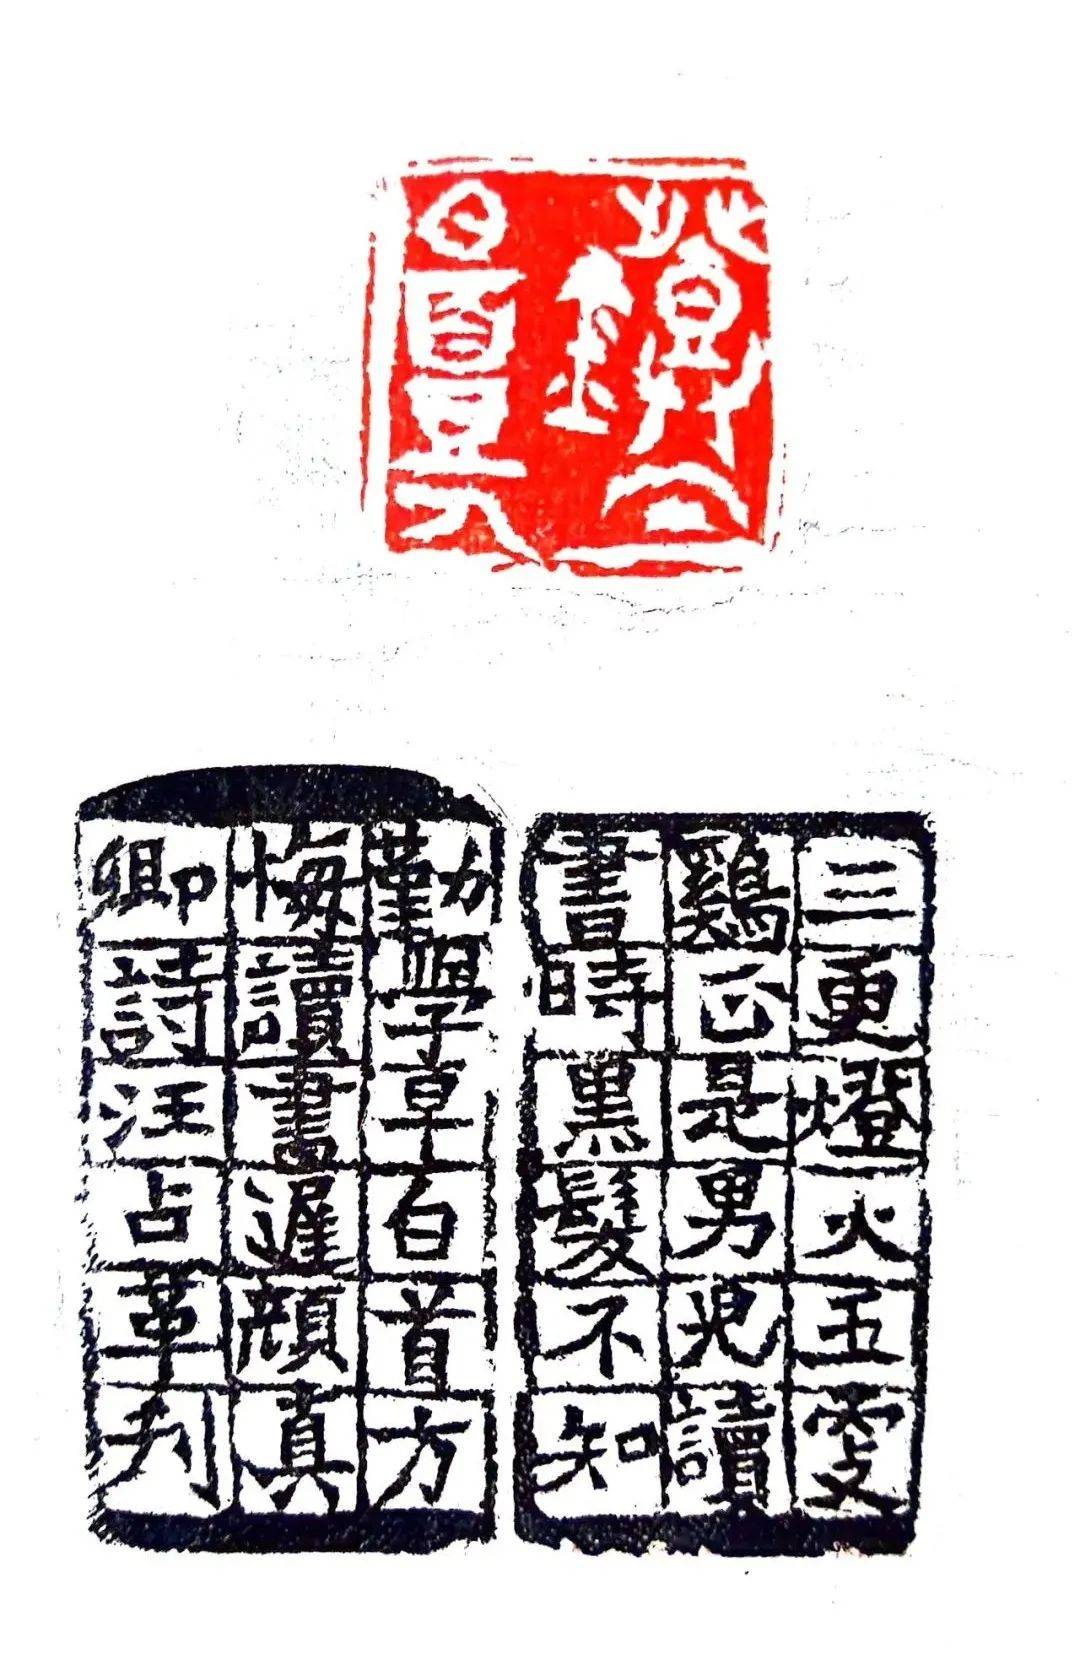 三更燈火五更
鷄正是男兒讀
書時黑髮不知
勤學早白首方
悔讀書遲顏真
卿詩汪占革刊